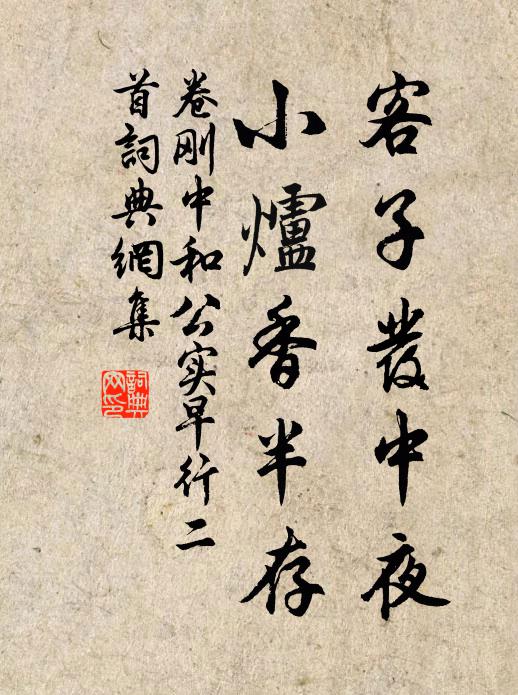 客子發中夜
小爐香半存
卷刚中和公实早行二
首詞典網集
詞典
网印